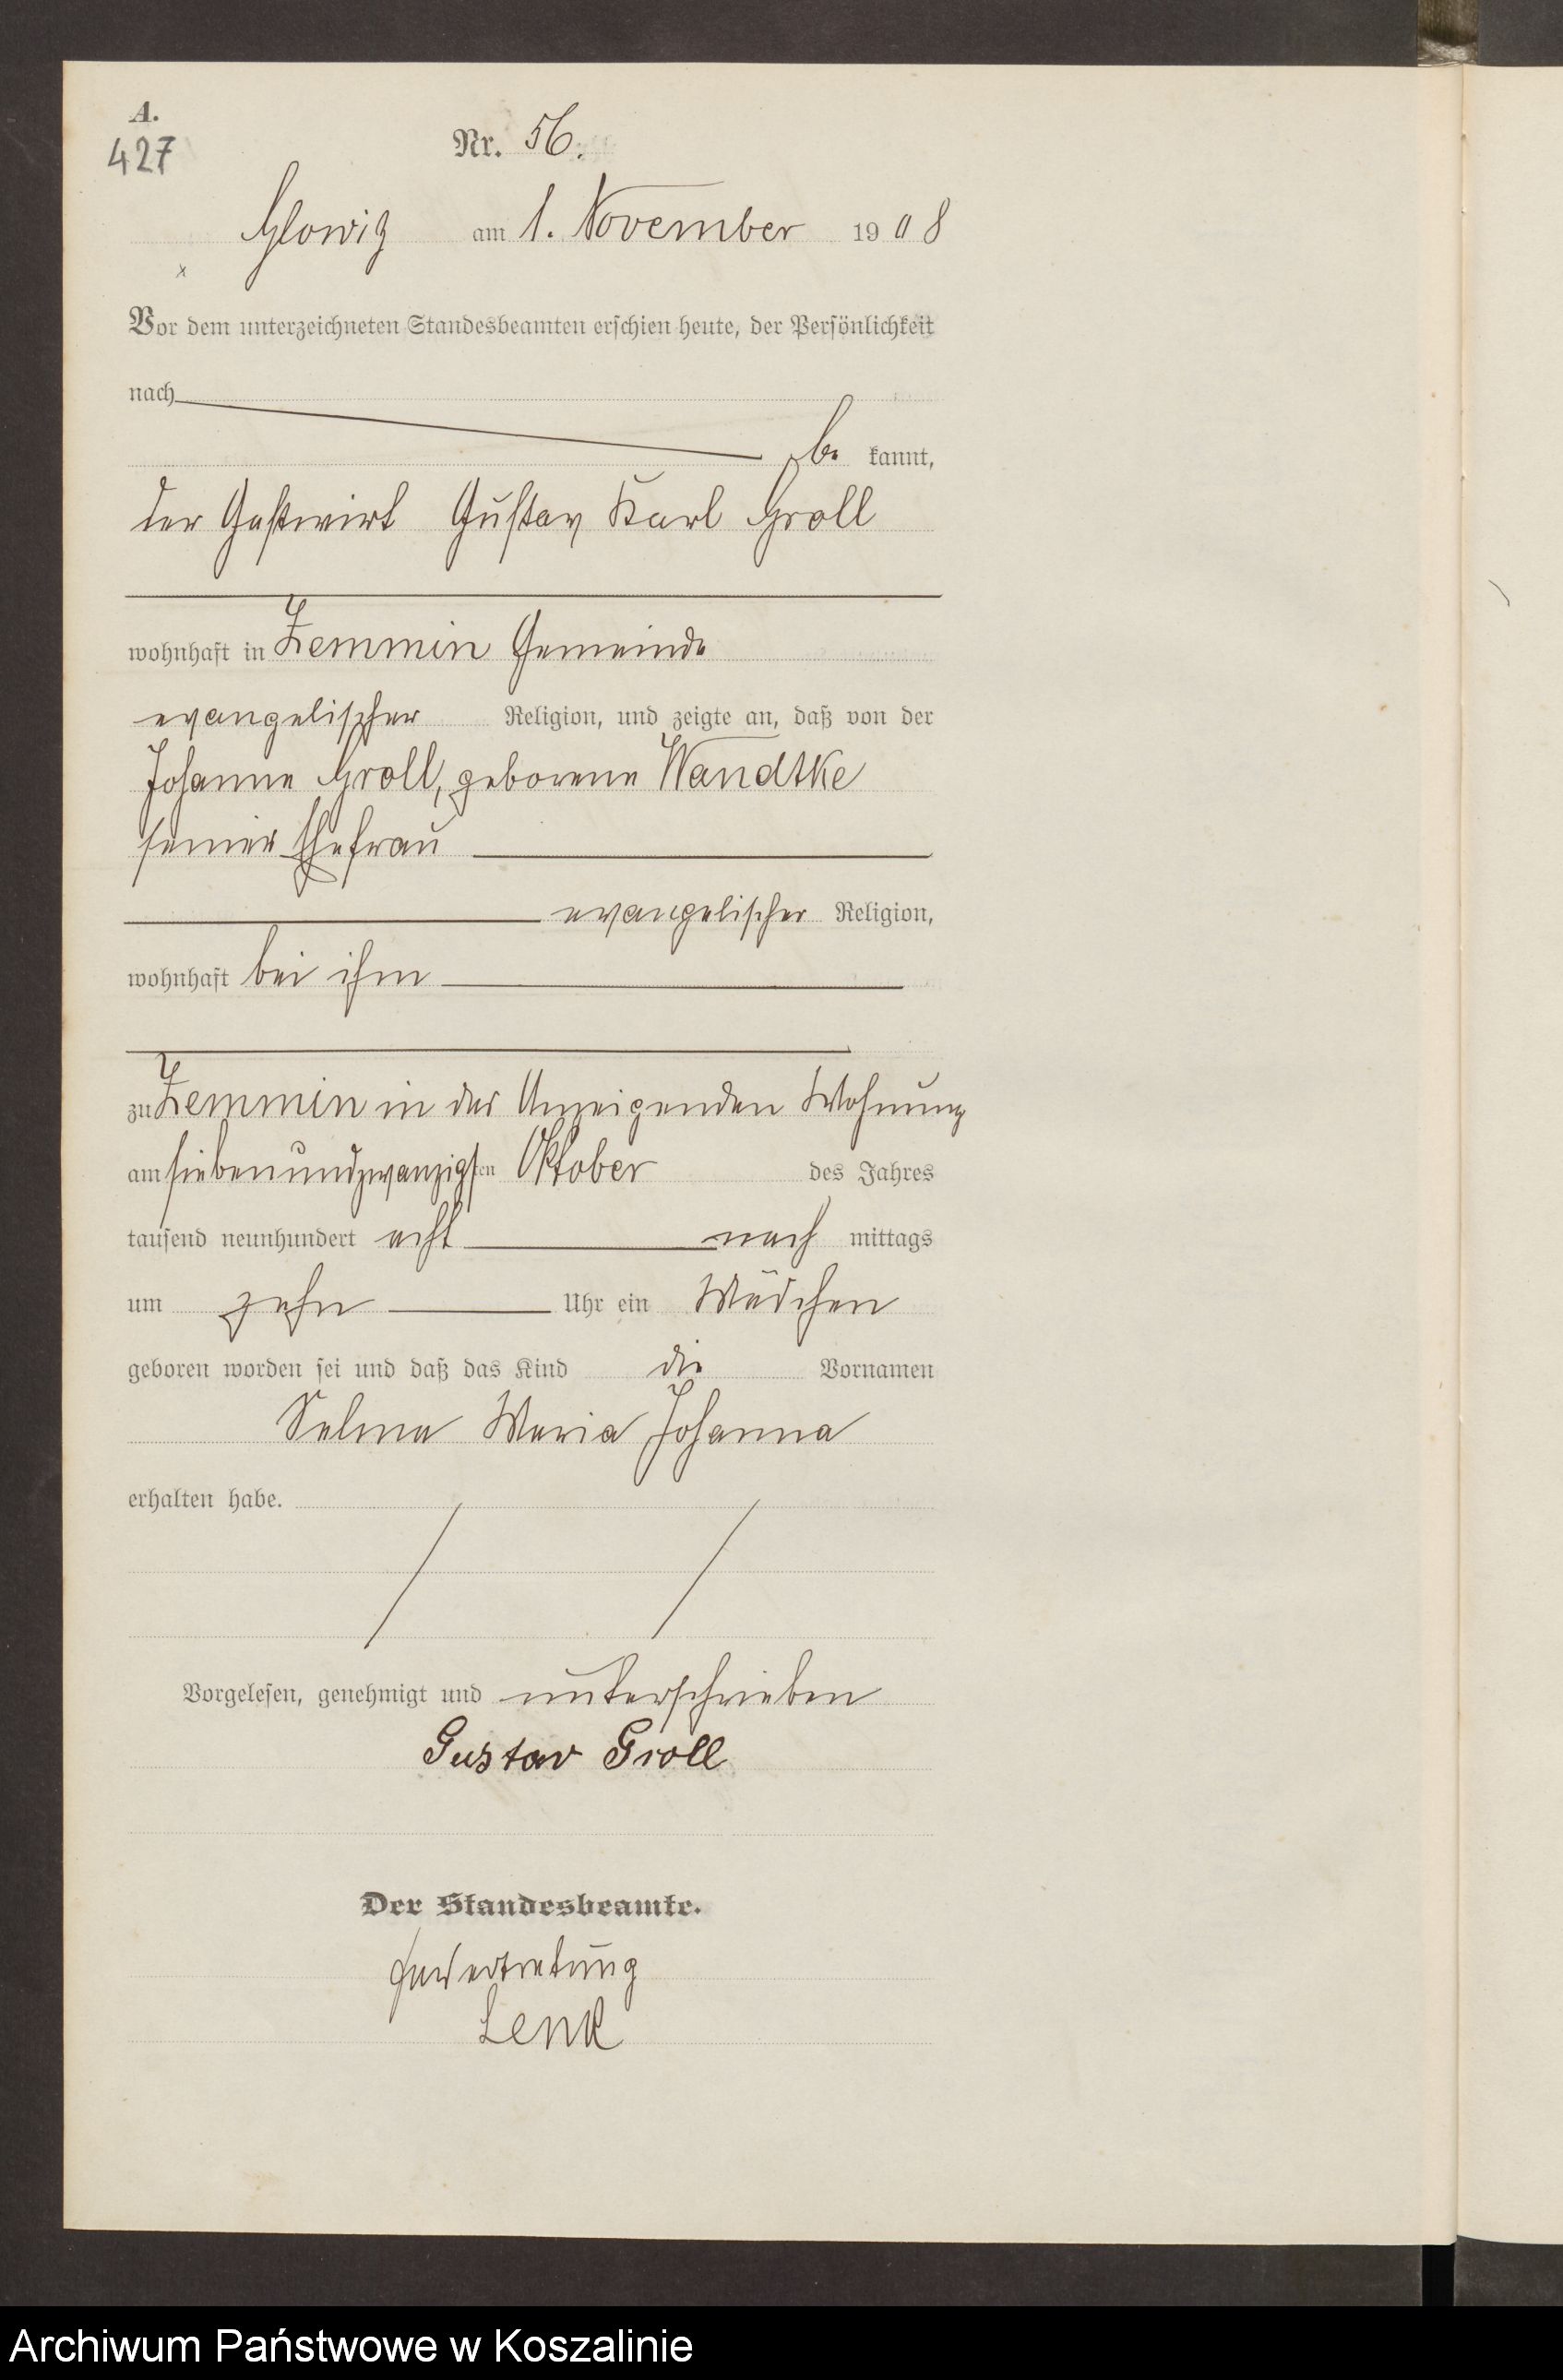 A.
427
Nr. 56.
Glowitz am 1. November 1908
Vor dem unterzeichneten Standesbeamten erschien heute, der Persönlichkeit
nach
be kannt,
der Gastwirt Gustav Karl Groll
wohnhaft in Zemmin Gemeinde
evangelischer Religion, und zeigte an, daß von der
Johanne Groll, geborene Wandtke
seiner Ehefrau
evangelischer Religion,
wohnhaft bei ihm
zu Zemmin in der Anzeigenden Wohnung
am siebenundzwanzigsten Oktober des Jahres
tausend neunhundert acht nach mittags
um zehn Uhr ein Mädchen
geboren worden sei und daß das Kind die Vornamen
Selma Maria Johanna
erhalten habe.
Vorgelesen, genehmigt und unterschrieben
Gustav Groll
Der Standesbeamte.
In Vertretung
Lenk
Archiwum Państwowe w Koszalinie